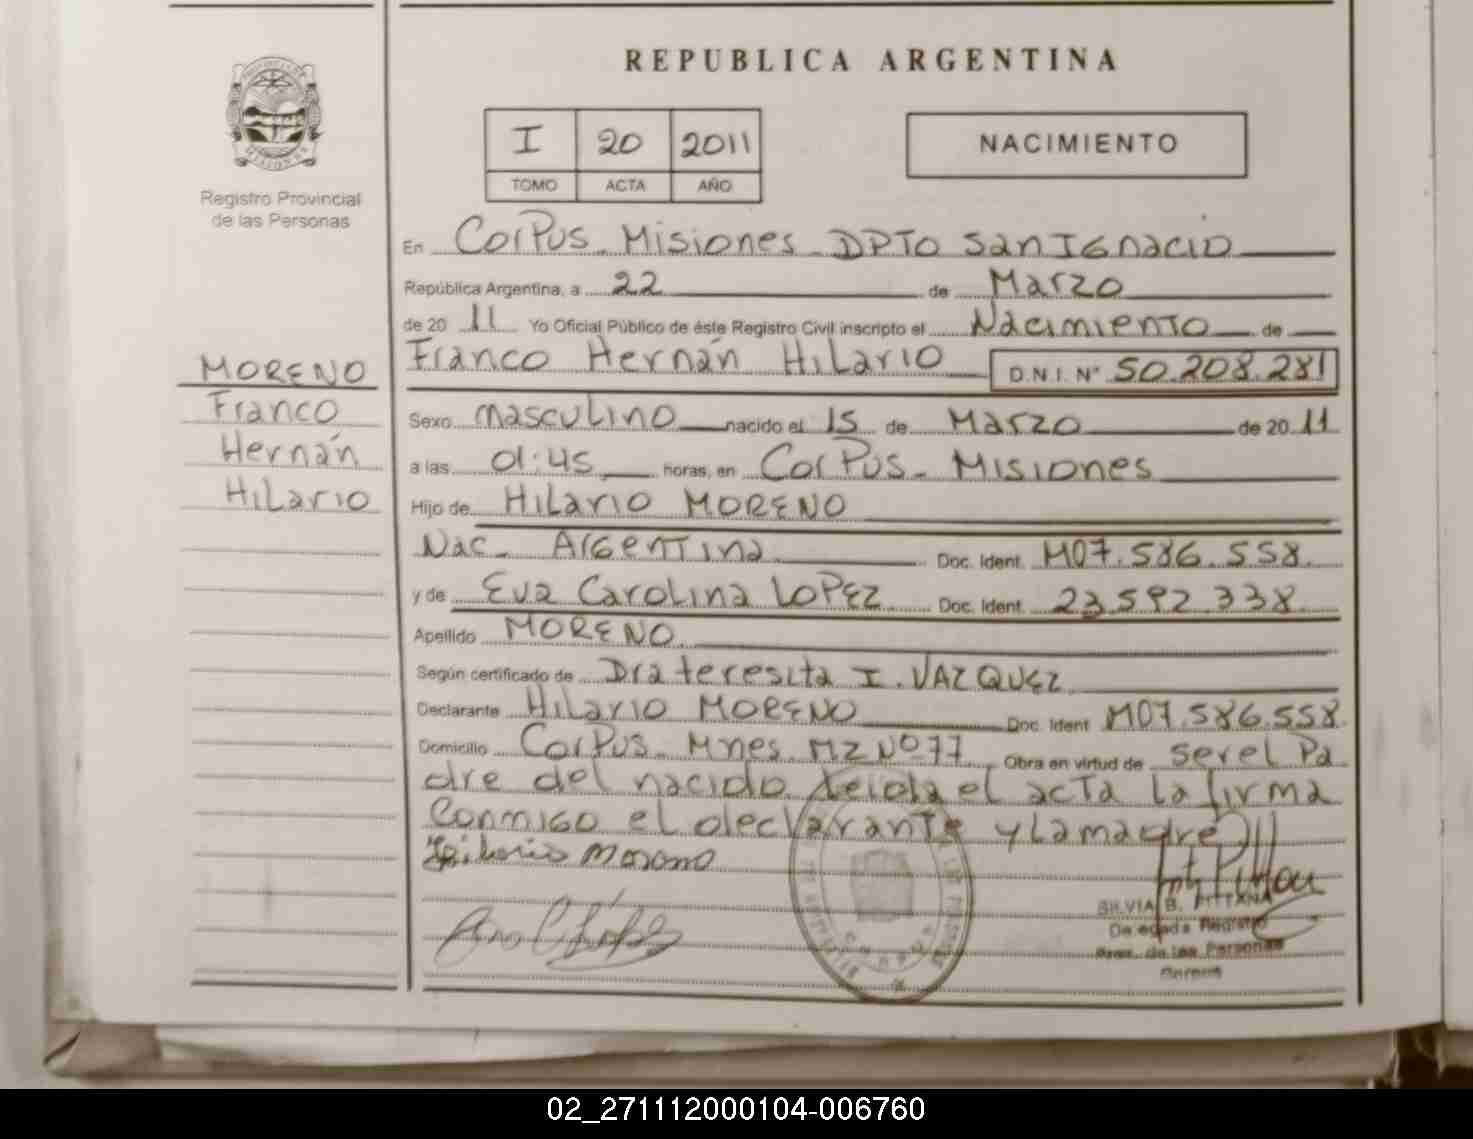 REPUBLICA ARGENTINA
I 20 2011
TOMO ACTA AÑO
NACIMIENTO
PROVINCIA DE MISIONES
Registro Provincial
de las Personas
MORENO
Franco
Hernán
Hilario
En Corpus - Misiones - DPTO San Ignacio
República Argentina, a 22 de Marzo
de 20 11 Yo Oficial Público de éste Registro Civil inscripto el Nacimiento de
Franco Hernán Hilario D.N.I. N° 50.208.281
Sexo masculino nacido el 15 de Marzo de 20 11
a las 01:45 horas, en Corpus - Misiones
Hijo de Hilario MORENO
Nac. Argentina Doc. Ident. M07.586.558.
y de Eva Carolina LOPEZ Doc. Ident. 23.592.338
Apellido MORENO
Según certificado de Dra teresita I. VAZQUEZ
Declarante Hilario MORENO Doc. Ident M07.586.558.
Domicilio Corpus - Mnes. MZ Nº 77 Obra en virtud de ser el Pa
dre del nacido leida el acta la firma
Conmigo el declarante y la madre
Hilario Moreno
SILVIA B. PITTANA
Registro
Prov. de las Personas
Corpus
02_271112000104-006760